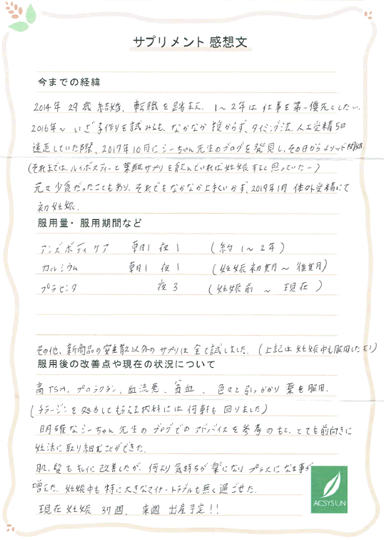 サプリメント 感想文
今までの経緯
2014年 29歳 結婚、転職を踏まえ、1〜2年は 仕事を第一優先としたい。
2016年〜 いざ子作りを試みるも、なかなか授からず、タイミング法、人工受精5回
迷走していた際、2017年10月にシーちゃん先生のブログを発見し、その日からメソッド開始
(それまでは、ルイボスティーと葉酸サプリを飲んでいれば妊娠すると思っていたー)
元々少食だったこともあり、それでもなかなか上手くいかず、2019年1月 体外受精にて
初妊娠。
服用量・服用期間など
アンズボディケア 朝1 夜1 (約1〜2年)
カルシウム 朝1 夜1 (妊娠初期〜後期)
プラセンタ 夜3 (妊娠前〜現在)
その他、新商品の 以外のサプリは全て試しました。(上記は妊娠中も服用したもの)
服用後の改善点や現在の状況について
高TSH、プロラクチン、血流悪、貧血、色々と引っかかり 薬も服用。
(チラージンを処方してもらえる病院には何軒も回りました)
明確なシーちゃん先生のブログでのアドバイスを参考のもと、とても前向きに
妊活に取り組むことができた。
肌、髪も私に改善したが、何より気持ちが楽になり プラスになる事が
増えた。妊娠中も特に大きなマイナートラブルも無く過ごせた。
現在 妊娠 37週、来週 出産予定!!
ACSYSUN